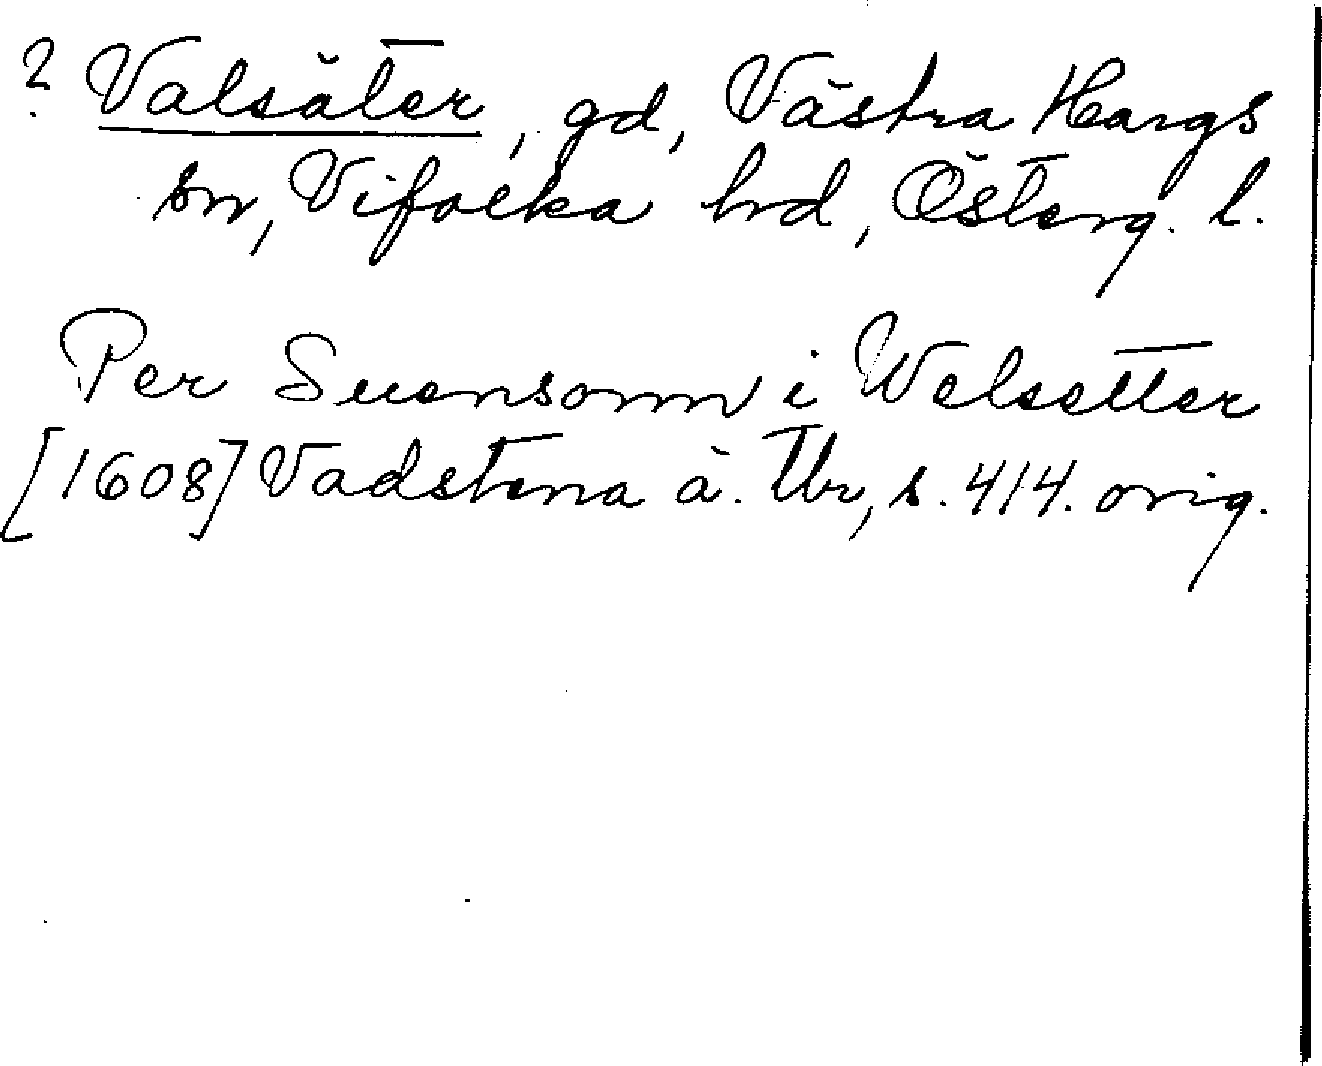 ? Valsäter, gd, Västra Hargs
sn, Vifolka hrd, Österg. l.
Per Suensonn i Welsetter
[1608] Vadstena ä. Tbr, s. 414. orig.